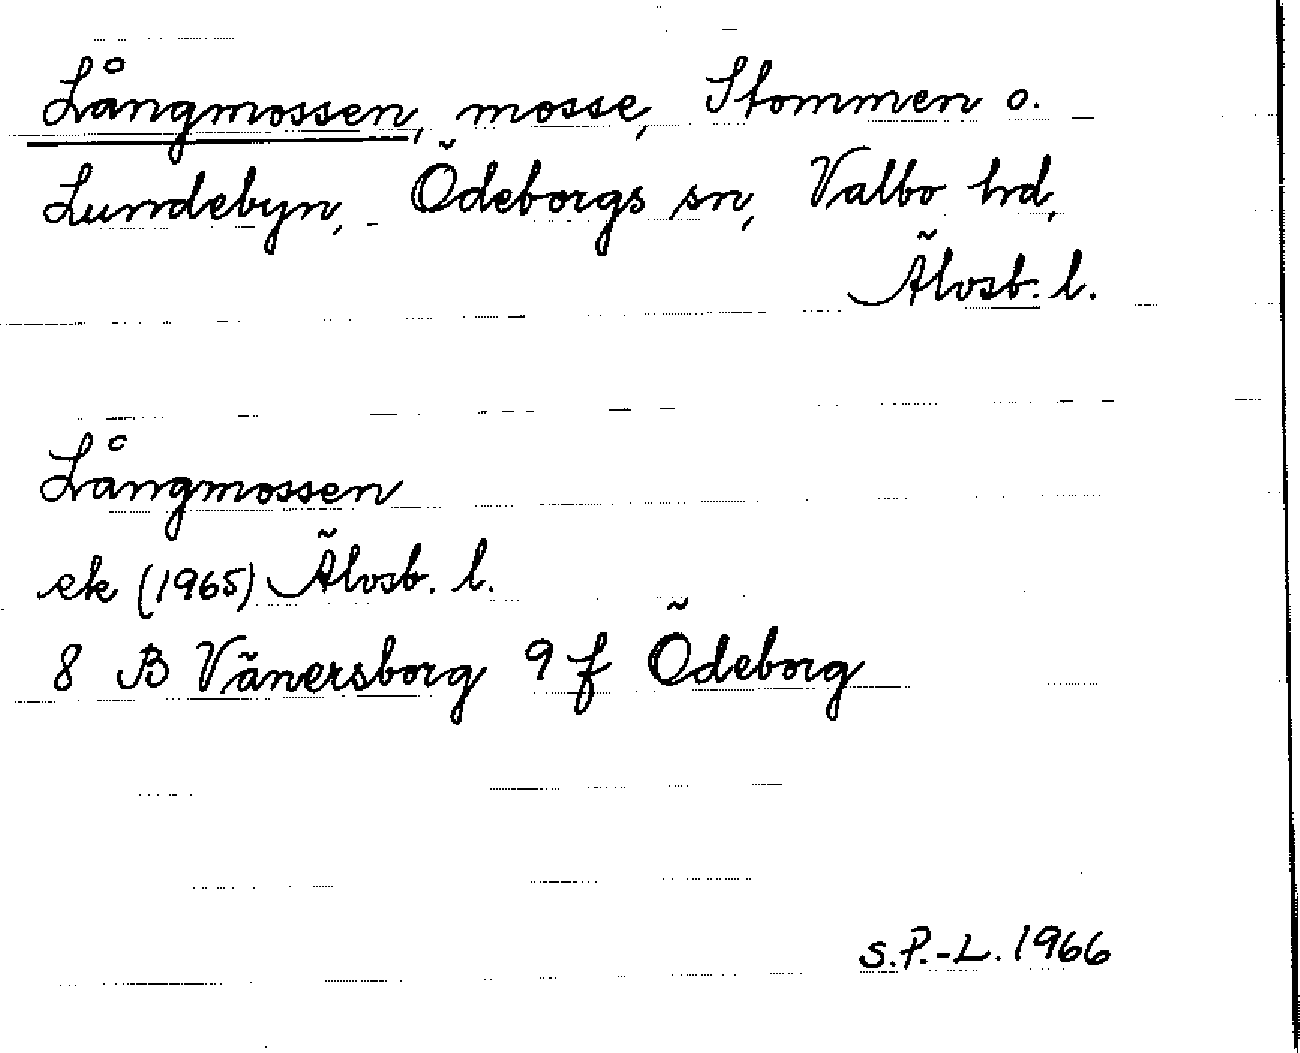 Långmossen, mosse, Stommen o.
Lundebyn, Ödeborgs sn, Valbo hd,
Älvsb. l.
Långmossen
ek (1965) Älvsb. l.
8 B Vänersborg 9 f Ödeborg
S.P.-L. 1966